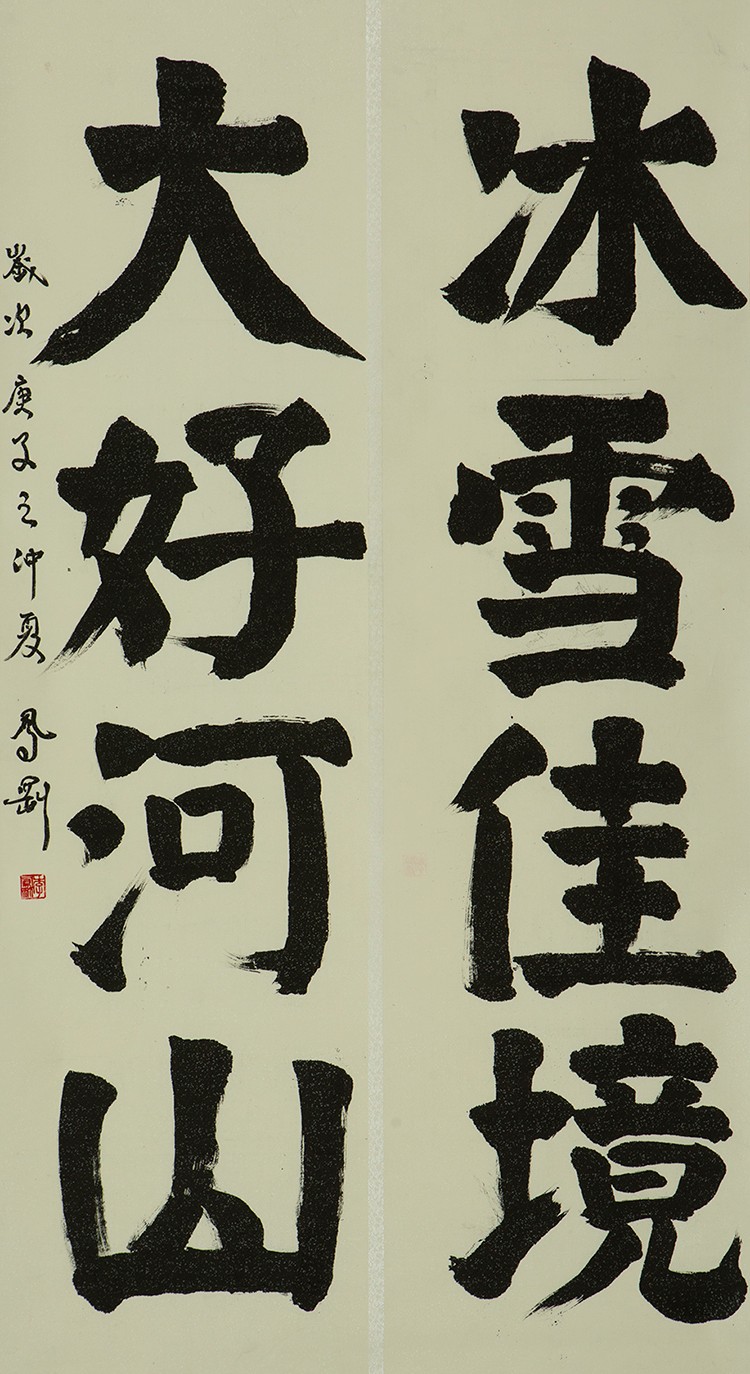 冰雪佳境
大好河山
歲次庚子之沖夏 馬剛